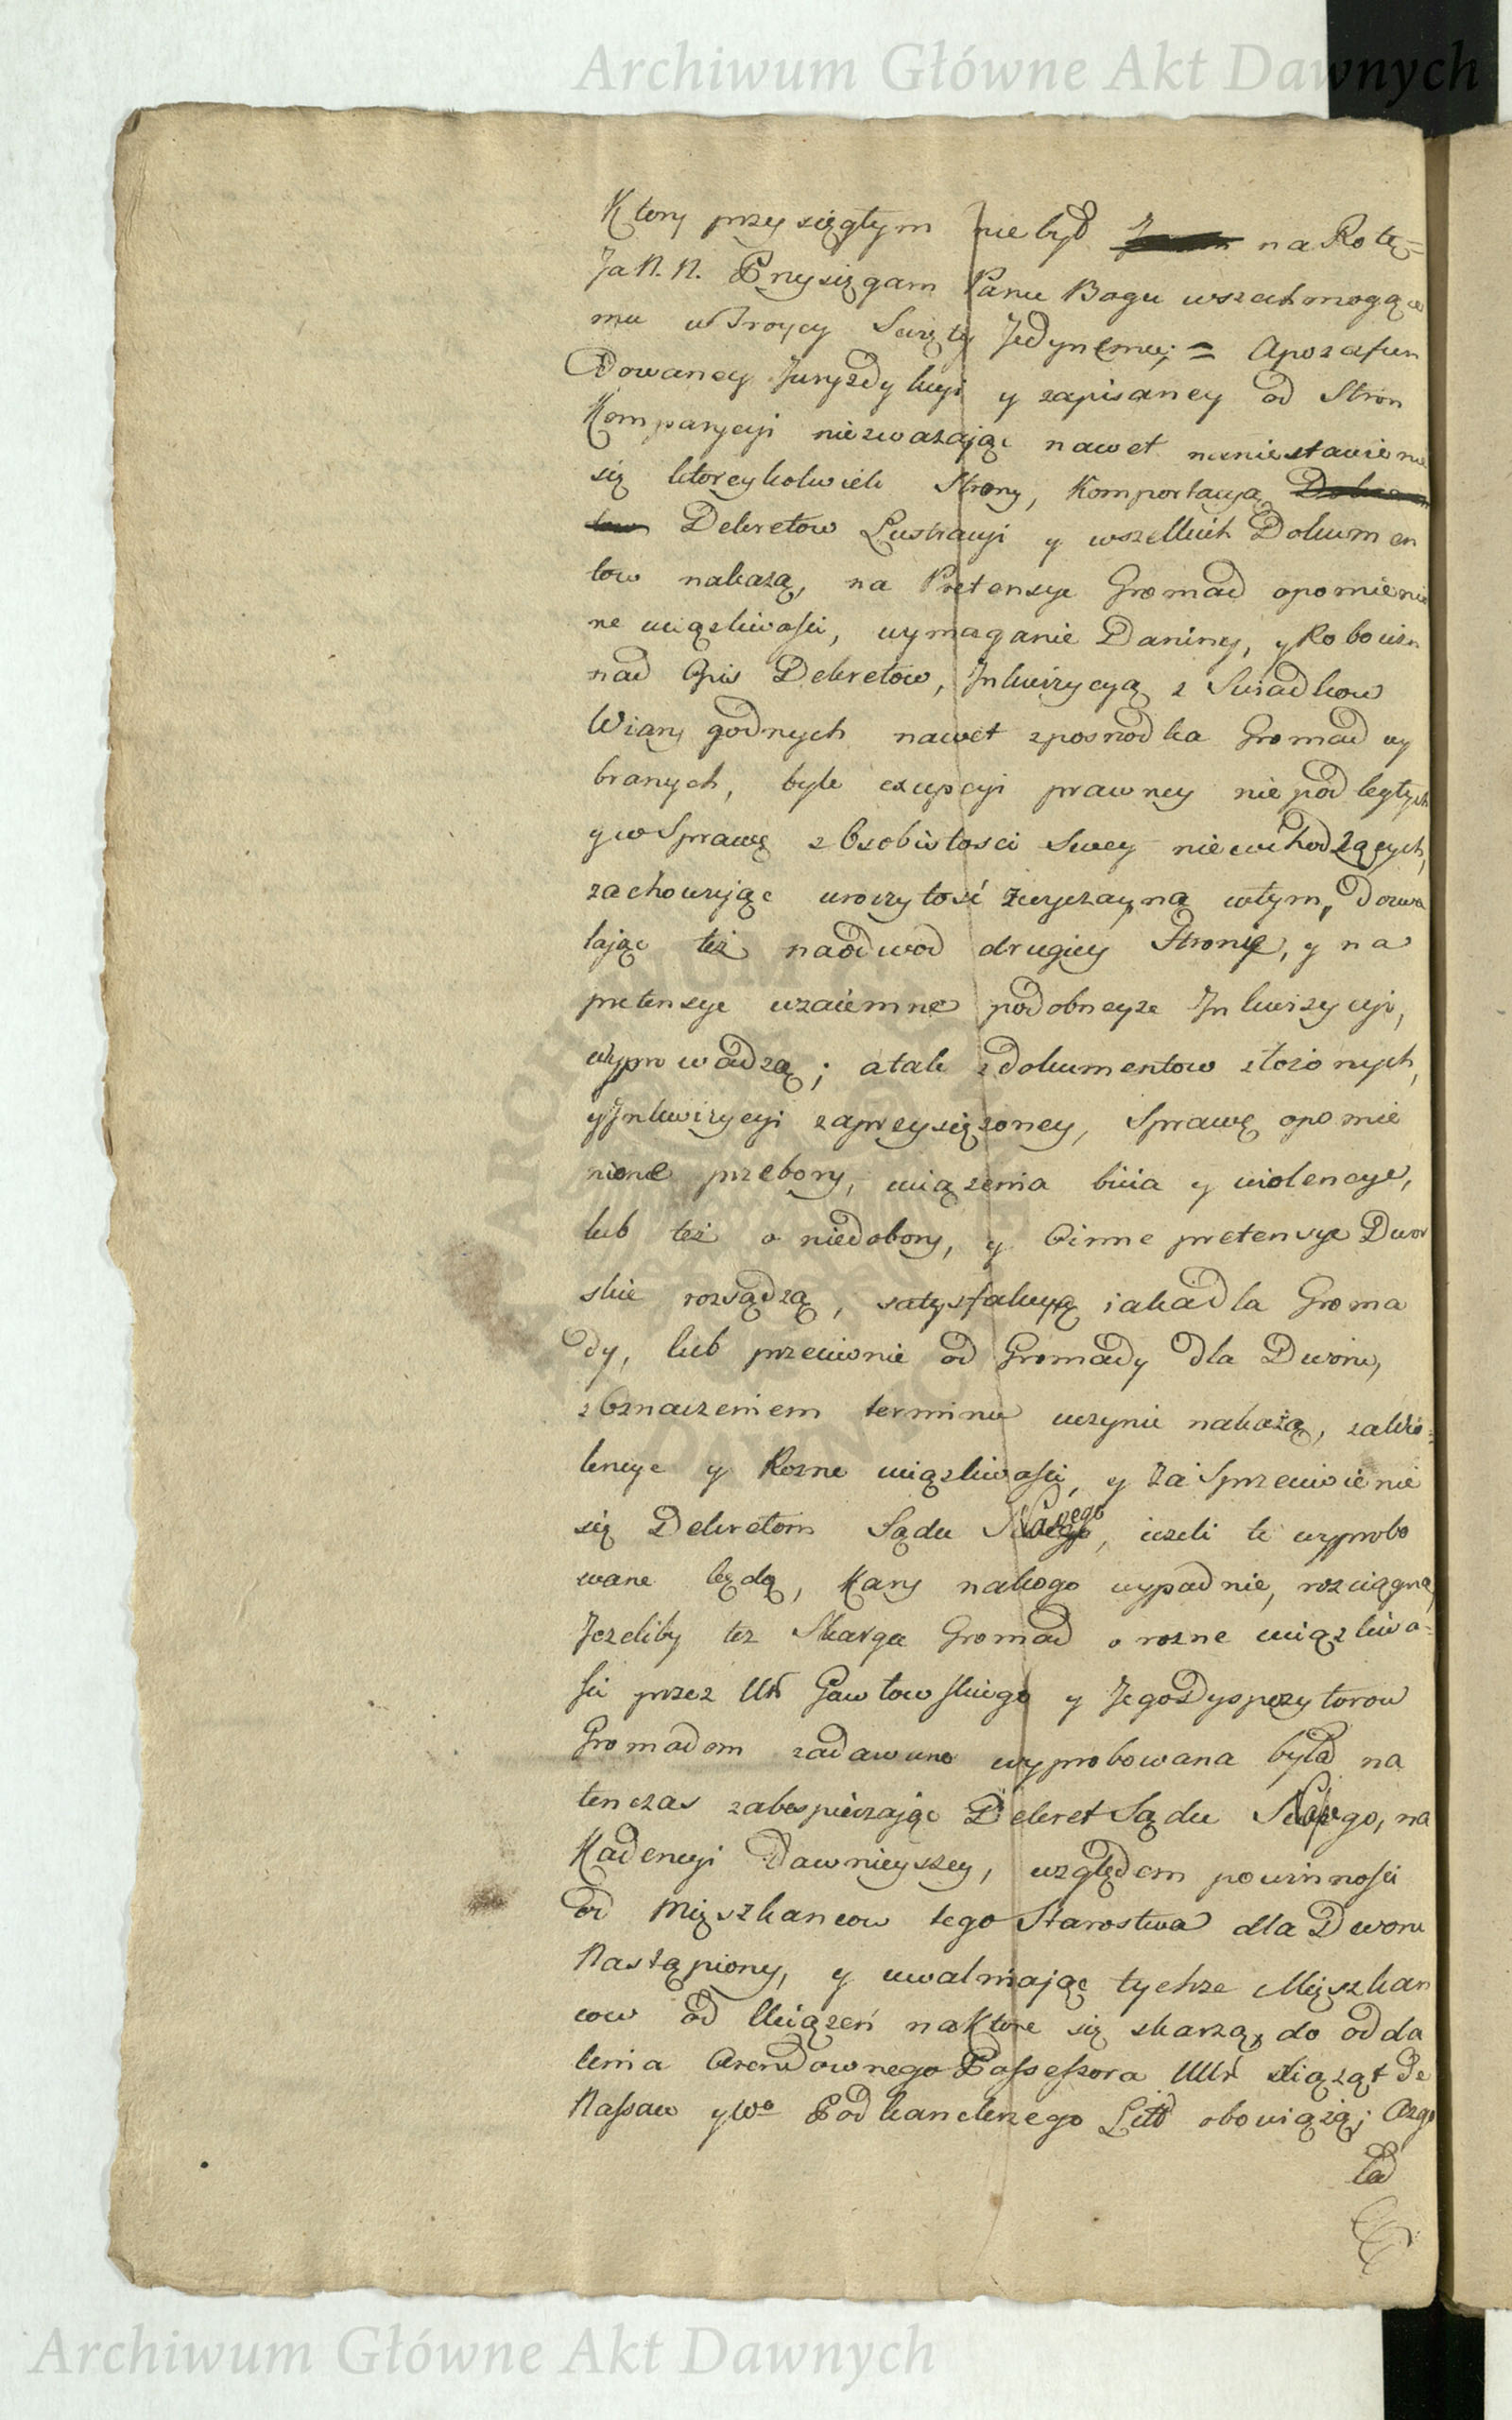 Archiwum Główne Akt Dawnych
Ktory przysięgłym niebył na Rotę=
Ja N. N. Przysięgam Panu Bogu wszechmogące
mu w Troycy Swięty Jedynemu; = A po zafun
dowaney Juryzdykcyi y zapisaney od Stron
Komparycyi niezwazając nawet na niestawienie
się ktoreykolwiek Strony, Komportacyą
Dekretow Lustracyi y wszelkich Dokumen
tow nakażą, na Pretensye Gromad o pomienio
ne uciązliwosci, wymaganie Daniny, y Robocizn
nad Opis Dekretow, Inkwizycyą z Swiadkow
Wiary godnych nawet zposrodka Gromad wy
branych, byle excepcyi prawney niepodległych
y w Sprawę z Osobistosci Swey niewchodzących,
zachowując uroczytość zwyczayną wtym, dozwa
lając też naodwod drugiey Stronie, y na
pretensye wzaiemne podobneyże Inkwizycyi,
wyprowadzą; a tak z dokumentow złożonych,
y Inkwizycyi zaprzysiężoney, Sprawę o pomie
nione przebory, uciążenia bicia y wiolencye,
lub też o niedobory, y Oinne pretensye Dwor
skie rozsądzą, satysfakcyą iaka dla Groma
dy, lub przeciwnie od Gromady dla Dworu,
z Oznaczeniem terminu uczynic nakażą, za Wio=
lencye y Rozne uciązliwosci, y za Sprzeciwienie
się Dekretom Sądu Naszego, iezeli te wyprobo
wane będą, Kary na kogo wypadnie, rozciągną,
Jezeliby tez Skarga Gromad o rozne uciązliwo=
sci przez Ur Gawłowskiego y Jego Dyspozytorow
Gromadom zadawane wyprobowana była na
tenczas zabespieczając Dekret Sądu Naszego, na
Kadencyi dawnieyszey, względem powinnosci
od Mięszkancow tego Starostwa dla Dworu
Nastąpiony, y uwalniając tychże Mięszkan
cow od Uciązeń na Ktore się skarzą, do odda
lenia Arendownego Possessora Xiążąt de
Nassaw y Wo Podkanclerzego Litt obowiążą; Azg
ła
Archiwum Główne Akt Dawnych